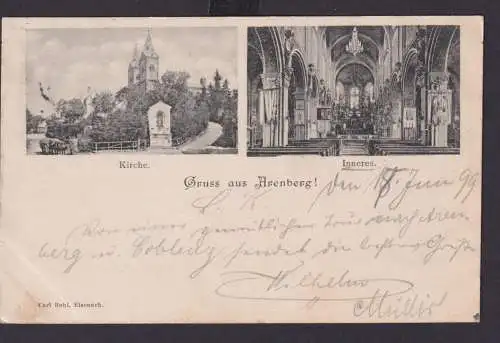 Kirche.
Inneres.
Gruss aus Arenberg!
L. K. den 18 Juni 99
Von einer gemütlichen Tour nach Aren
berg u. Coblenz sendet die besten Grüße
Wilhelm
Müller
Carl Rahl, Eisenach.